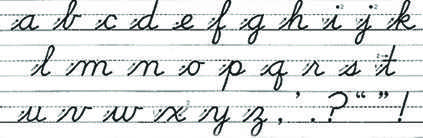 a b c d e f g h i j k
l m n o p q r s t
u v w x y z , ' . ? “ ” !